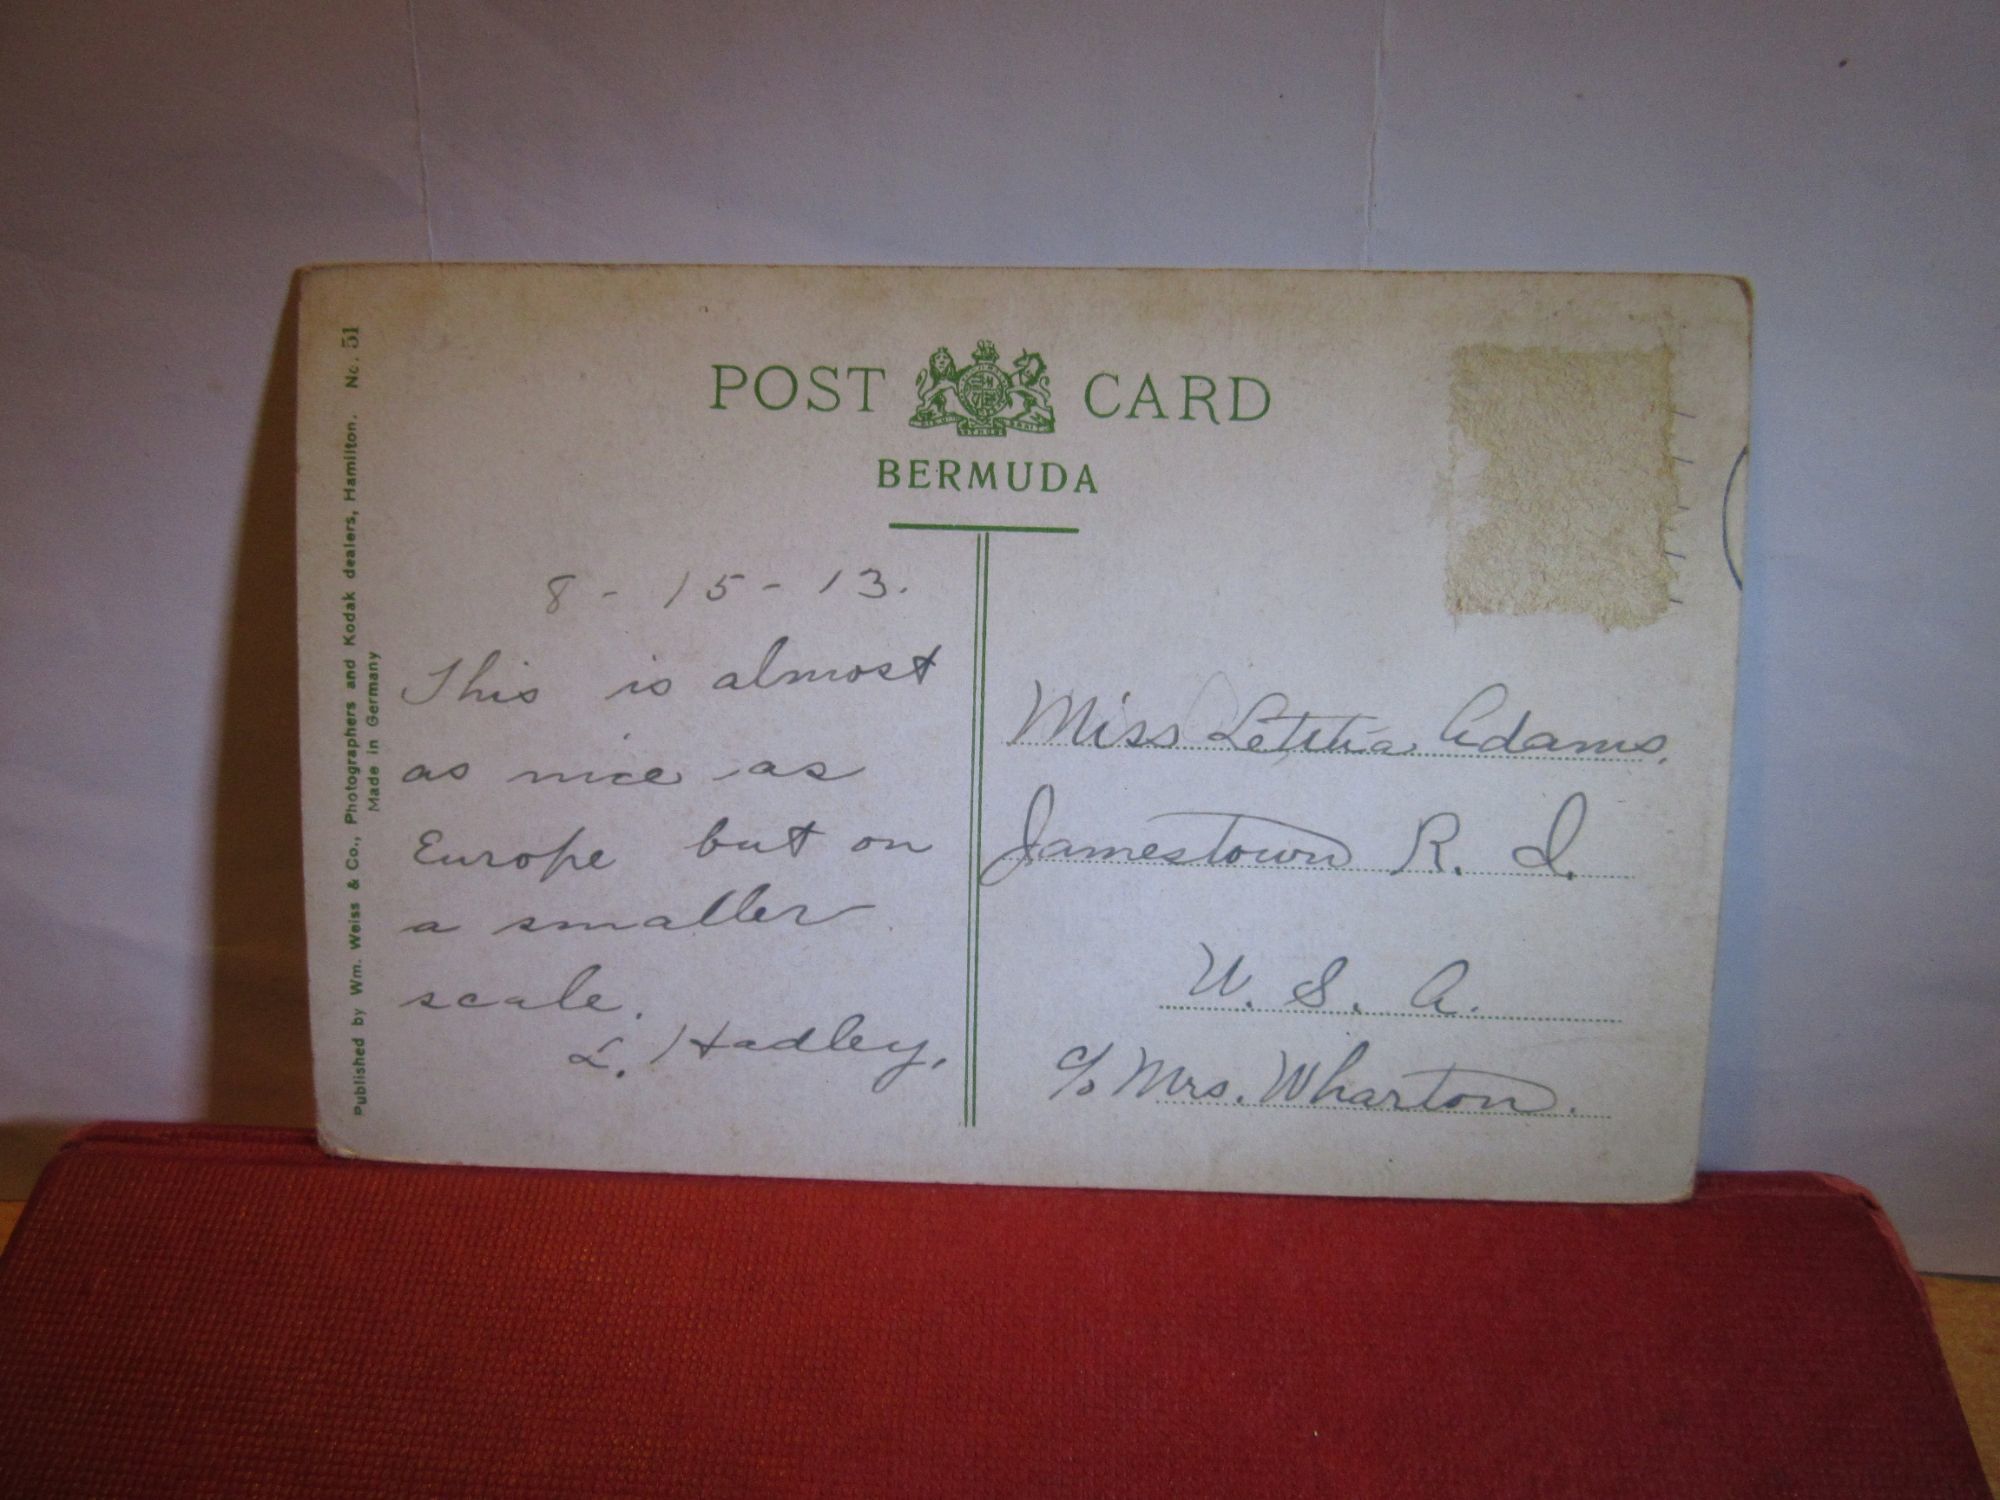 POST CARD
BERMUDA
Published by Wm. Weiss & Co., Photographers and Kodak dealers, Hamilton. No. 51
Made in Germany
8-15-13.
This is almost
as nice as
Europe but on
a smaller
scale.
L. Hadley,
Miss Letitia Adams,
Jamestown R. I.
U. S. A.
c/o Mrs. Wharton.